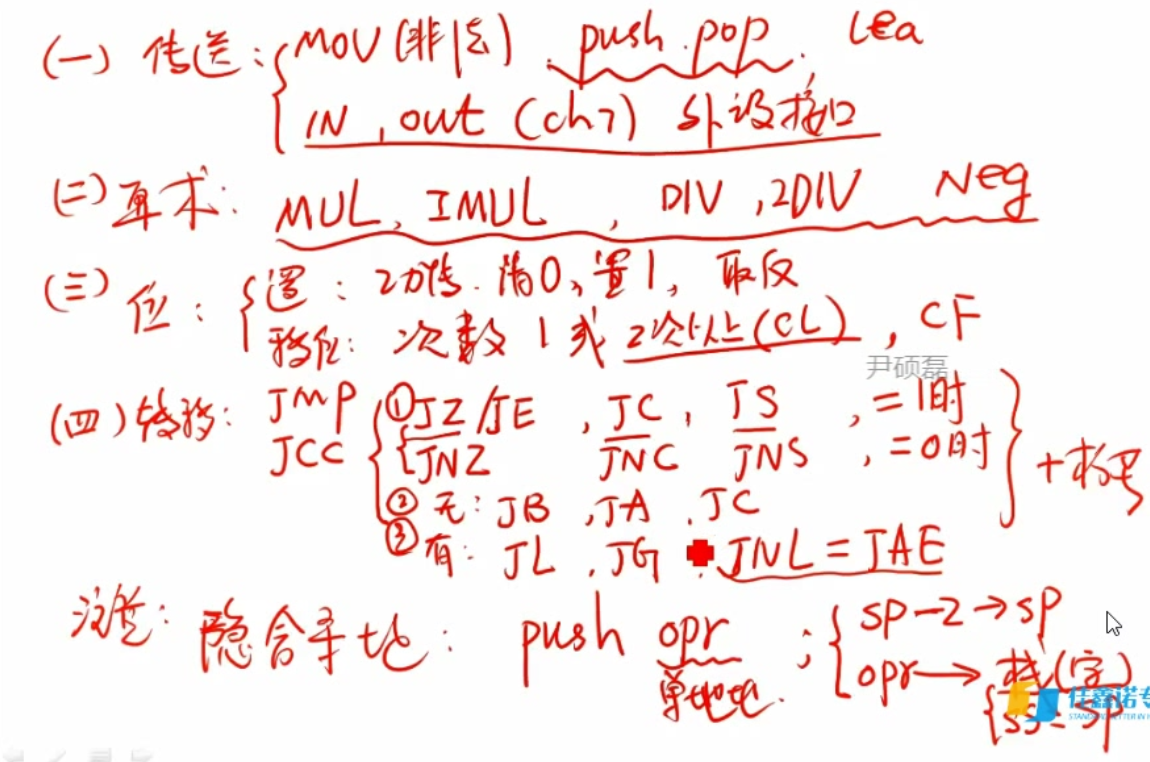 (一) 传送: MOV(非法). push. pop. Lea
IN, out (ch7) 外设接口
(二) 算术: MUL, IMUL, DIV, 2DIV Neg
(三) 位: 逻: 2功传. 清0, 置1, 取反
移位: 次数 1 或 2次以上(CL), CF
尹硕磊
(四) 转移: JMP ① JZ/JE, JC, JS, =1时
JCC JNZ JNC JNS, =0时 +标号
② 无: JB, JA, JC
③ 有: JL, JG, JNL = JAE
注意: 隐含寻址: push opr; sp-2→sp
单地址. opr→栈(字)
佳鑫诺专
SS:SP